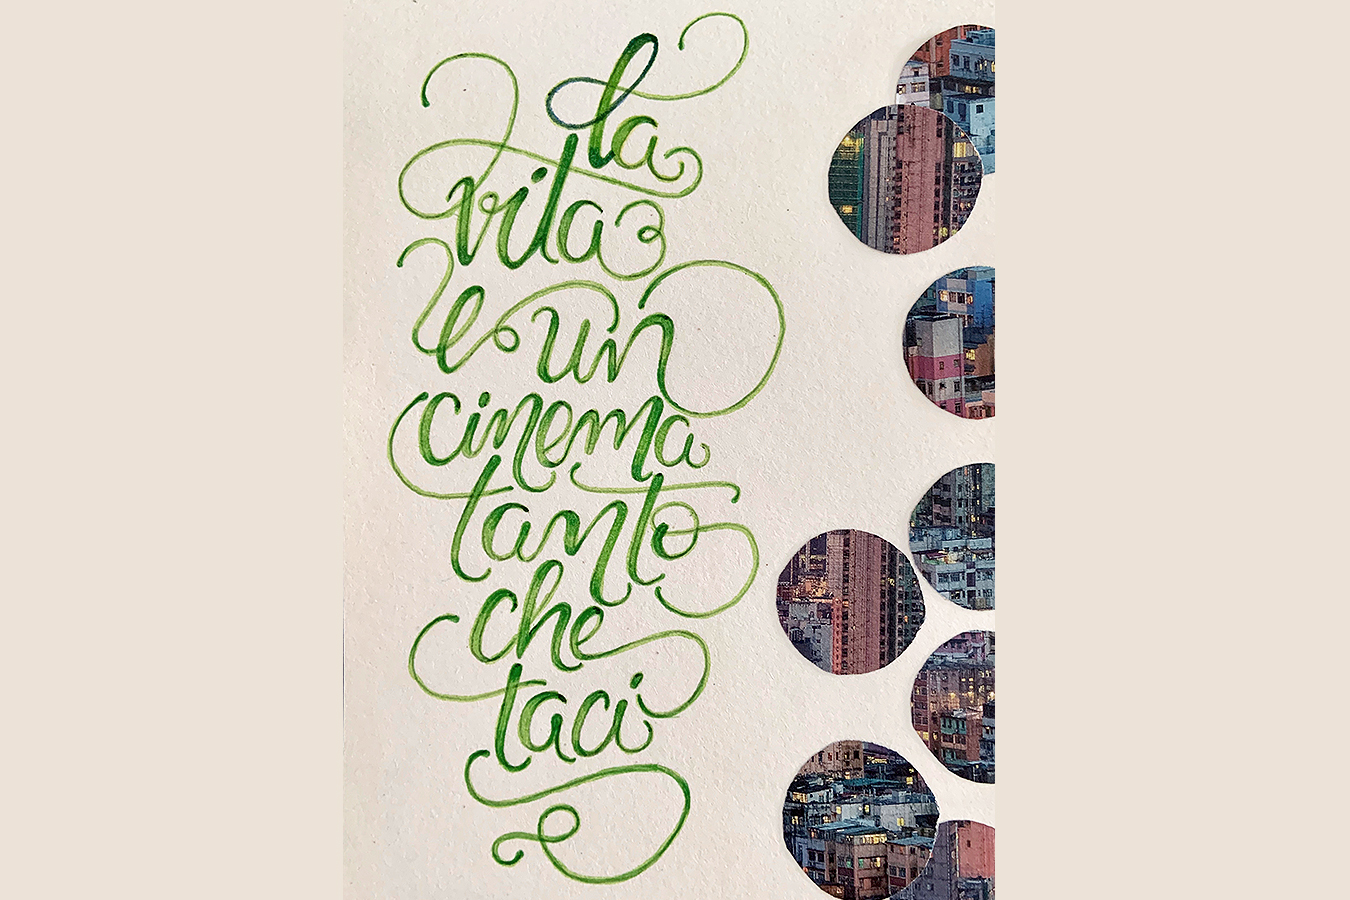 la
vita
e un
cinema
tanto
che
taci